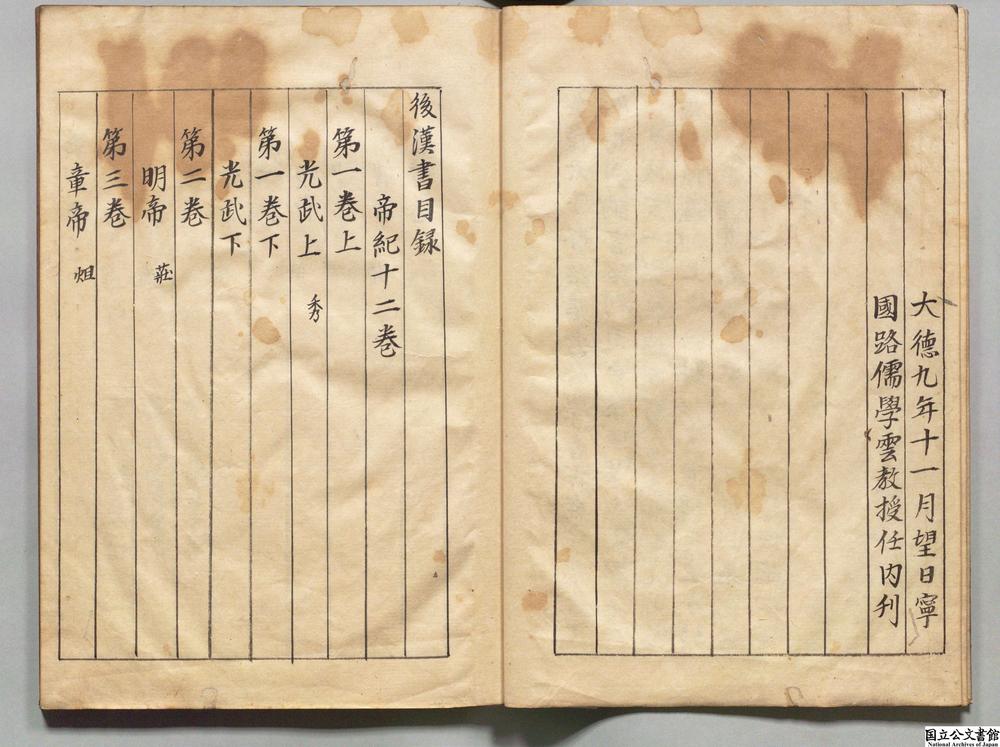 大德九年十一月望日寧
國路儒學雲教授任内刋
後漢書目録
帝紀十二巻
第一巻上
光武上 秀
第一巻下
光武下
第二巻
明帝 莊
第三巻
章帝 炟
国立公文書館
National Archives of Japan